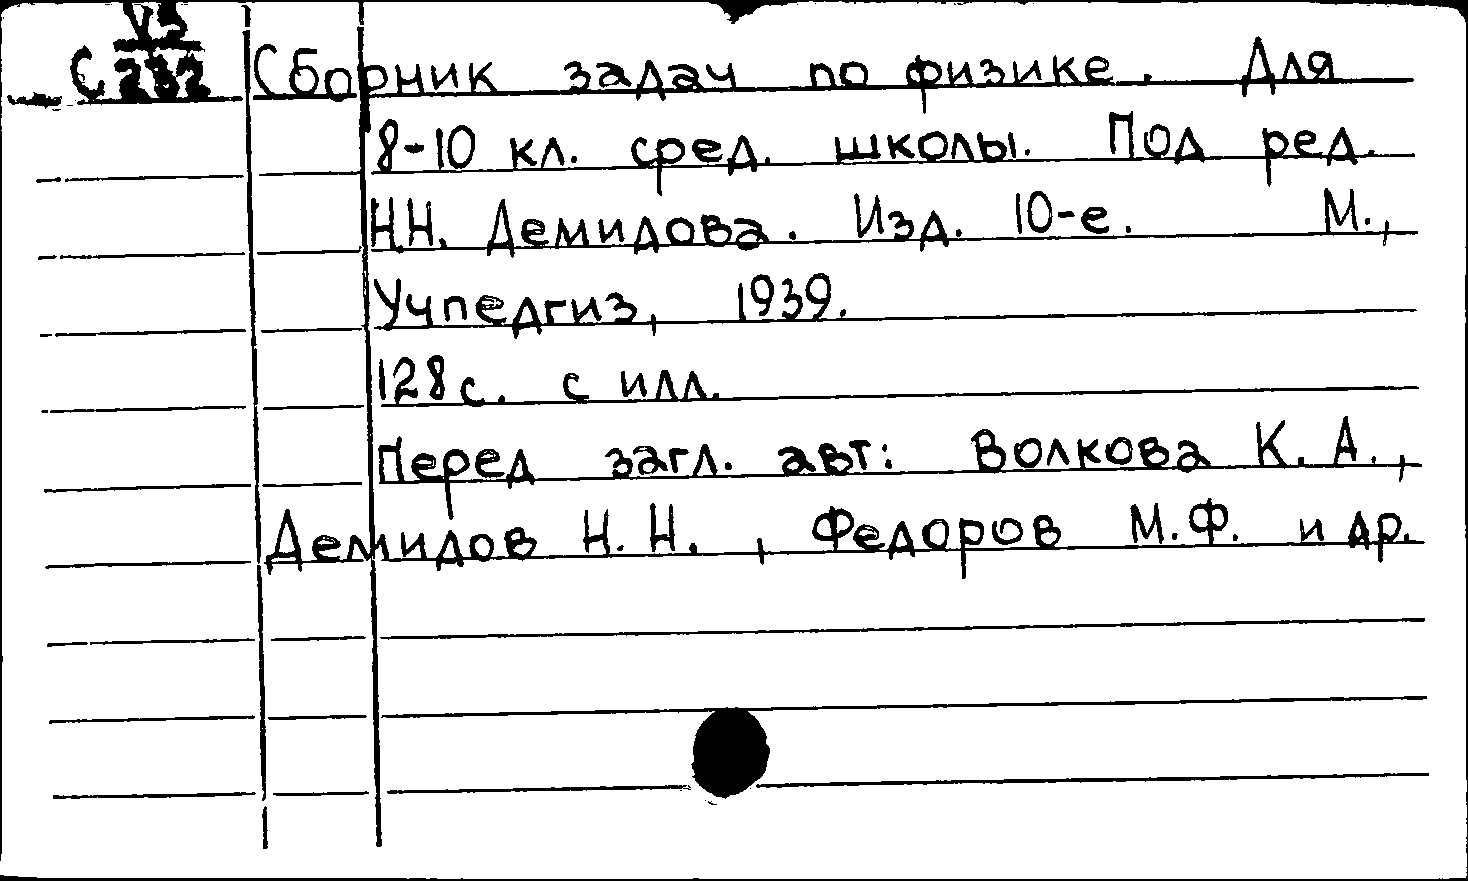 С У5/232
Сборник задач по физике. Для
8-10 кл. сред. школы. Под ред.
Н.Н. Демидова. Изд. 10-е. М.,
Учпедгиз, 1939.
128 с. с илл.
Перед загл. авт: Волкова К. А.,
Демидов Н. Н. , Федоров М.Ф. и др.